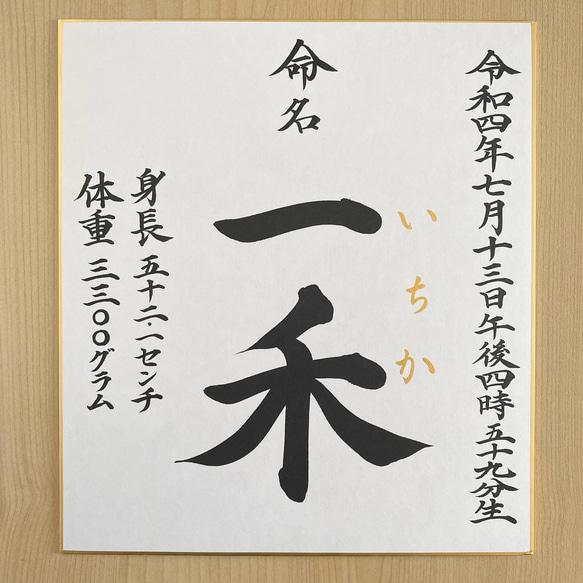 令和四年七月十三日午後四時五十九分生
命名
一禾
いちか
身長 五十二.一センチ
体重 三三〇〇グラム